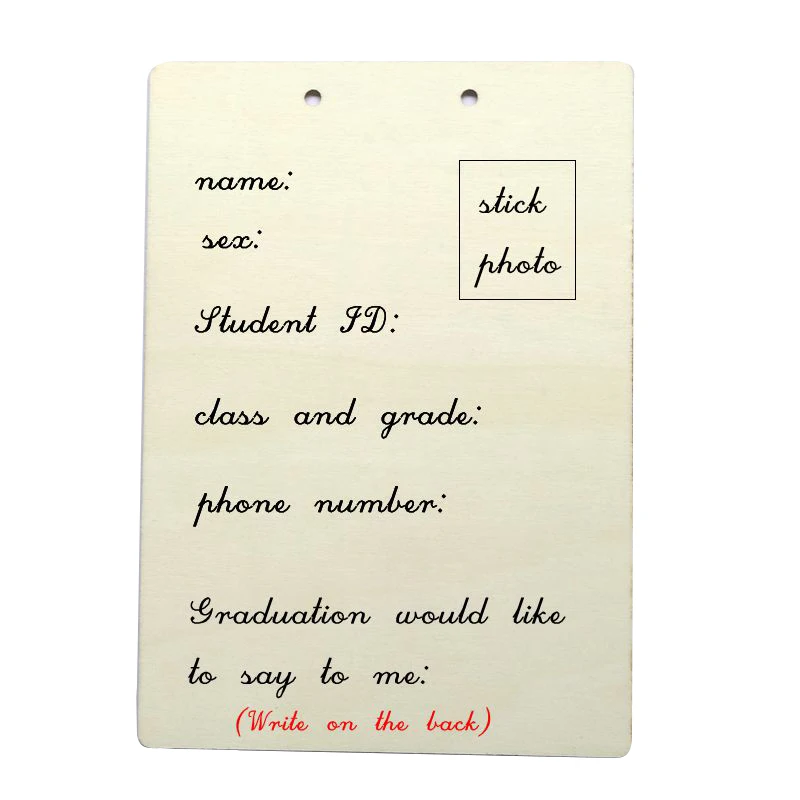 name:
stick
sex:
photo
Student ID:
class and grade:
phone number:
Graduation would like
to say to me:
(Write on the back)